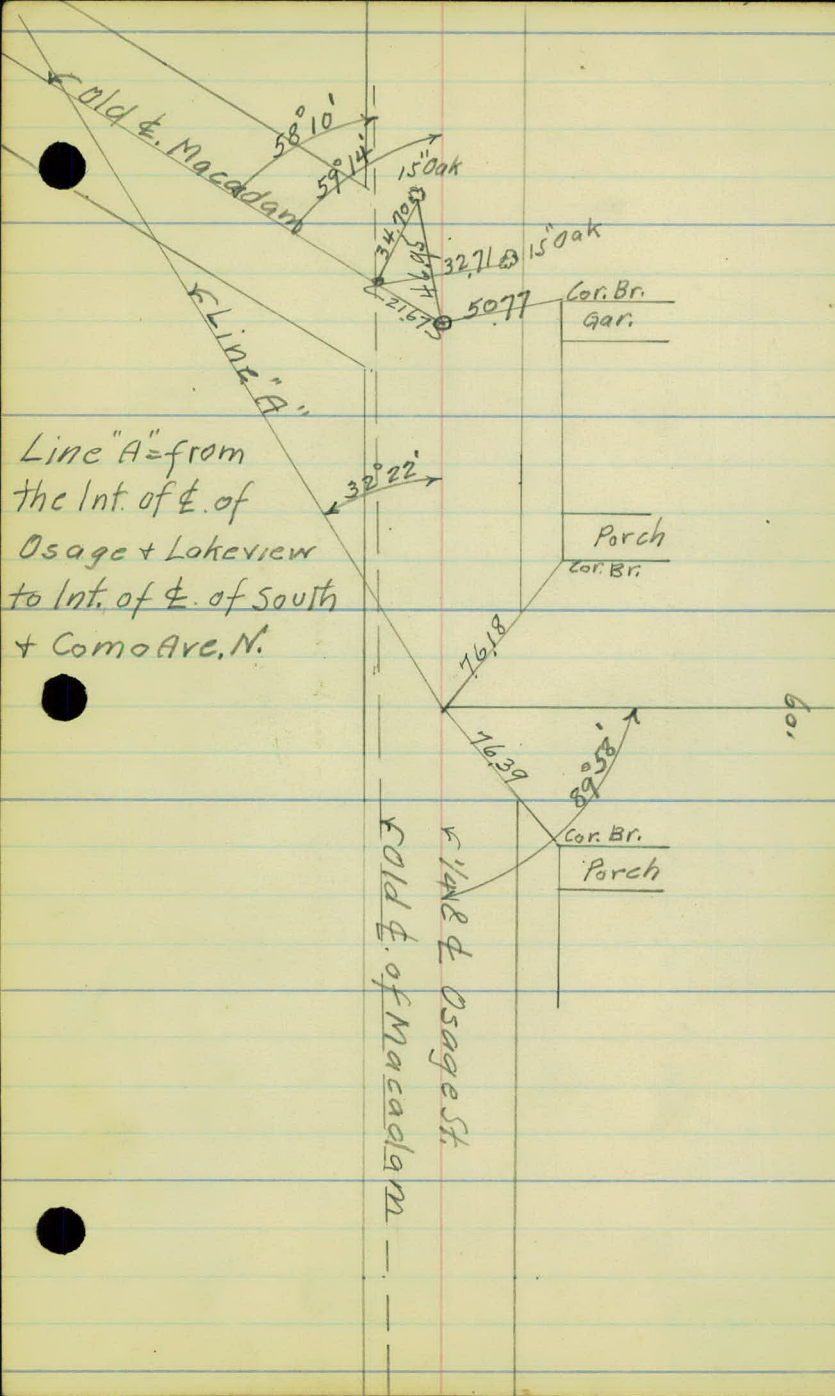 Old ℄. Macadam
58° 10'
59° 14'
15" Oak
34.70
32.71
15" Oak
21.67
50.77
Cor. Br.
Gar.
Line "A"
Line "A" = from
the Int. of ℄. of
Osage + Lakeview
to Int. of ℄. of South
+ Como Ave. N.
32° 22'
Porch
Cor. Br.
76.18
60'
76.39
89° 58'
Cor. Br.
Porch
Old ℄. of Macadam
℄ Osage St.